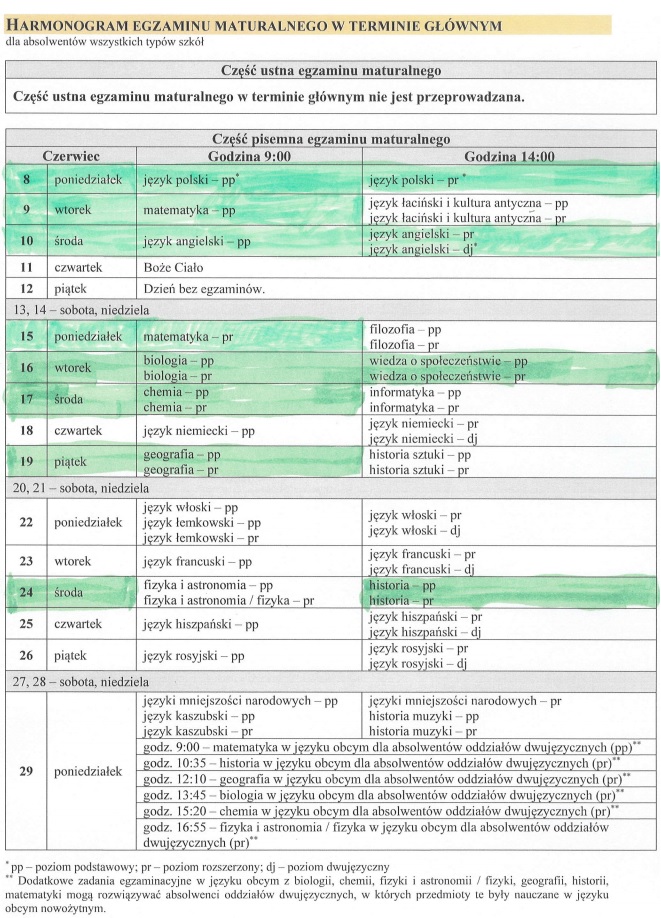 HARMONOGRAM EGZAMINU MATURALNEGO W TERMINIE GŁÓWNYM
dla absolwentów wszystkich typów szkół
Część ustna egzaminu maturalnego
Część ustna egzaminu maturalnego w terminie głównym nie jest przeprowadzana.
Część pisemna egzaminu maturalnego
Czerwiec Godzina 9:00 Godzina 14:00
8 poniedziałek język polski – pp* język polski – pr *
9 wtorek matematyka – pp język łaciński i kultura antyczna – pp
język łaciński i kultura antyczna – pr
10 środa język angielski – pp język angielski – pr
język angielski – dj*
11 czwartek Boże Ciało
12 piątek Dzień bez egzaminów.
13, 14 – sobota, niedziela
15 poniedziałek matematyka – pr filozofia – pp
filozofia – pr
16 wtorek biologia – pp wiedza o społeczeństwie – pp
biologia – pr wiedza o społeczeństwie – pr
17 środa chemia – pp informatyka – pp
chemia – pr informatyka – pr
18 czwartek język niemiecki – pp język niemiecki – pr
język niemiecki – dj
19 piątek geografia – pp historia sztuki – pp
geografia – pr historia sztuki – pr
20, 21 – sobota, niedziela
22 poniedziałek język włoski – pp język włoski – pr
język łemkowski – pp język włoski – dj
język łemkowski – pr
23 wtorek język francuski – pp język francuski – pr
język francuski – dj
24 środa fizyka i astronomia – pp historia – pp
fizyka i astronomia / fizyka – pr historia – pr
25 czwartek język hiszpański – pp język hiszpański – pr
język hiszpański – dj
26 piątek język rosyjski – pp język rosyjski – pr
język rosyjski – dj
27, 28 – sobota, niedziela
29 poniedziałek języki mniejszości narodowych – pp języki mniejszości narodowych – pr
język kaszubski – pp historia muzyki – pp
język kaszubski – pr historia muzyki – pr
godz. 9:00 – matematyka w języku obcym dla absolwentów oddziałów dwujęzycznych (pp)**
godz. 10:35 – historia w języku obcym dla absolwentów oddziałów dwujęzycznych (pr)**
godz. 12:10 – geografia w języku obcym dla absolwentów oddziałów dwujęzycznych (pr)**
godz. 13:45 – biologia w języku obcym dla absolwentów oddziałów dwujęzycznych (pr)**
godz. 15:20 – chemia w języku obcym dla absolwentów oddziałów dwujęzycznych (pr)**
godz. 16:55 – fizyka i astronomia / fizyka w języku obcym dla absolwentów oddziałów
dwujęzycznych (pr)**
* pp – poziom podstawowy; pr – poziom rozszerzony; dj – poziom dwujęzyczny
** Dodatkowe zadania egzaminacyjne w języku obcym z biologii, chemii, fizyki i astronomii / fizyki, geografii, historii,
matematyki mogą rozwiązywać absolwenci oddziałów dwujęzycznych, w których przedmioty te były nauczane w języku
obcym nowożytnym.